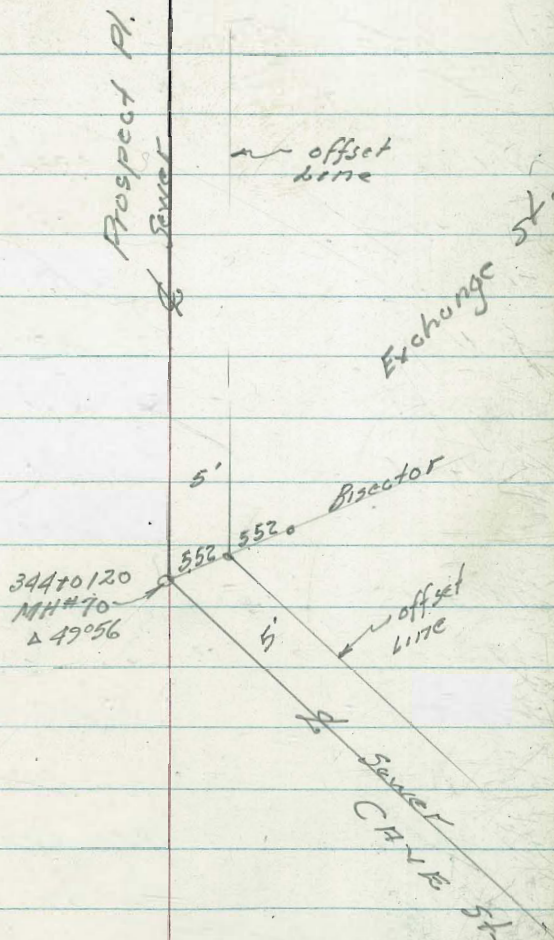 Prospect Pl.
℄ Sewer
offset
Line
Exchange St.
5'
Bisector
552 552
344+0120
MH#70
Δ 49°56
5'
offset
Line
℄ Sewer
CANE St